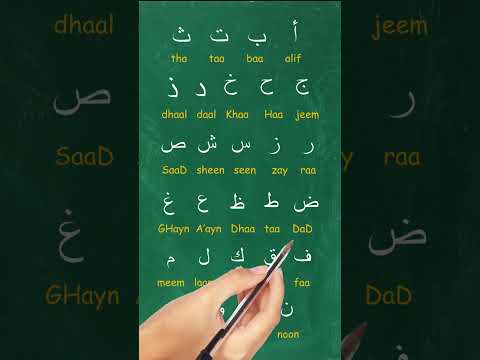 أ ب ت ث
tha taa baa alif
ج ح خ د ذ
dhaal daal Khaa Haa jeem
ر ز س ش ص
SaaD sheen seen zay raa
ض ط ظ ع غ
GHayn A'ayn Dhaa taa DaD
ف ق ك ل م
meem faa
ن
noon
dhaal
ص
SaaD
غ
GHayn
jeem
ر
raa
ض
DaD